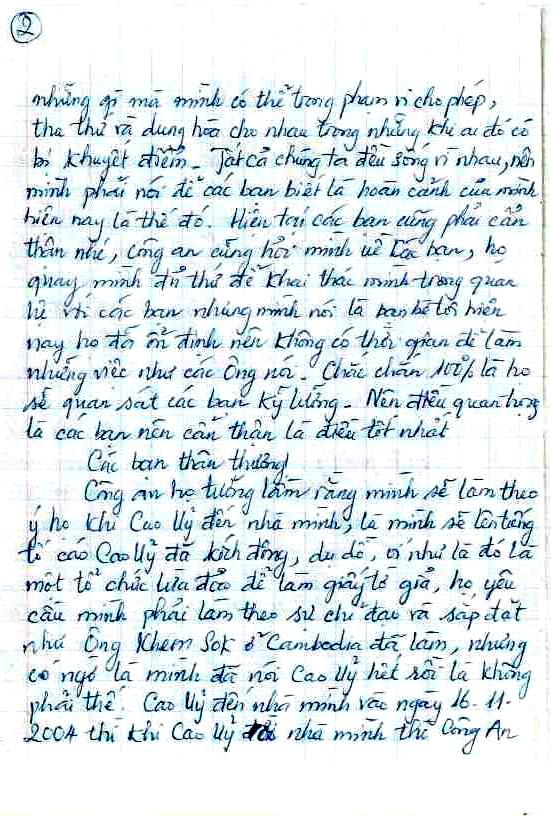 2
những gì mà mình có thể trong phạm vi cho phép,
tha thứ và dung hòa cho nhau trong những khi ai đó có
bị khuyết điểm. Tất cả chúng ta đều sống vì nhau, nên
mình phải nói để các bạn biết là hoàn cảnh của mình
hiện nay là thế đó. Hiện tại các bạn cũng phải cẩn
thận nhé, công an cũng hỏi mình về các bạn, họ
quay mình đủ thứ để khai thác mình trong quan
hệ với các bạn nhưng mình nói là bạn bè tôi hiện
nay họ đã ổn định nên không có thời gian để làm
những việc như các Ông nói. Chắc chắn 100% là họ
sẽ quan sát các bạn kỹ lưỡng. Nên điều quan trọng
là các bạn nên cẩn thận là điều tốt nhất
Các bạn thân thương!
Công an họ tưởng lầm rằng mình sẽ làm theo
ý họ khi Cao Uỷ đến nhà mình, là mình sẽ lên tiếng
tố cáo Cao Uỷ đã kích động, dụ dỗ, ví như là đó là
một tổ chức lừa đảo để làm giấy tờ giả, họ yêu
cầu mình phải làm theo sự chỉ đạo và sắp đặt
như Ông Khem Sok ở Cambodia đã làm, nhưng
có ngờ là mình đã nói Cao Uỷ hết rồi là không
phải thế. Cao Uỷ đến nhà mình vào ngày 16-11-
2004 thì khi Cao Uỷ nhà mình thì Công An